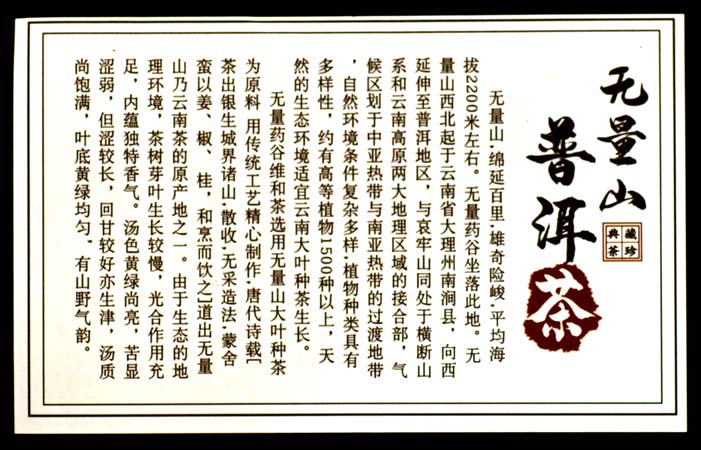 无量山
普洱
茶
藏珍
典茶
无量山,绵延百里,雄奇险峻,平均海
拔2200米左右。无量药谷坐落此地。无
量山西北起于云南省大理州南涧县，向西
延伸至普洱地区，与哀牢山同处于横断山
系和云南高原两大地理区域的接合部，气
候区划于中亚热带与南亚热带的过渡地带
，自然环境条件复杂多样,植物种类具有
多样性，约有高等植物1500种以上，天
然的生态环境适宜云南大叶种茶生长。
无量药谷维和茶选用无量山大叶种茶
为原料 用传统工艺精心制作,唐代诗载[
茶出银生城界诸山,散收,无采造法,蒙舍
蛮以姜、椒、桂，和烹而饮之]道出无量
山乃云南茶的原产地之一。由于生态的地
理环境，茶树芽叶生长较慢，光合作用充
足，内蕴独特香气。汤色黄绿尚亮，苦显
涩弱，但涩较长，回甘较好亦生津，汤质
尚饱满，叶底黄绿均匀。有山野气韵。